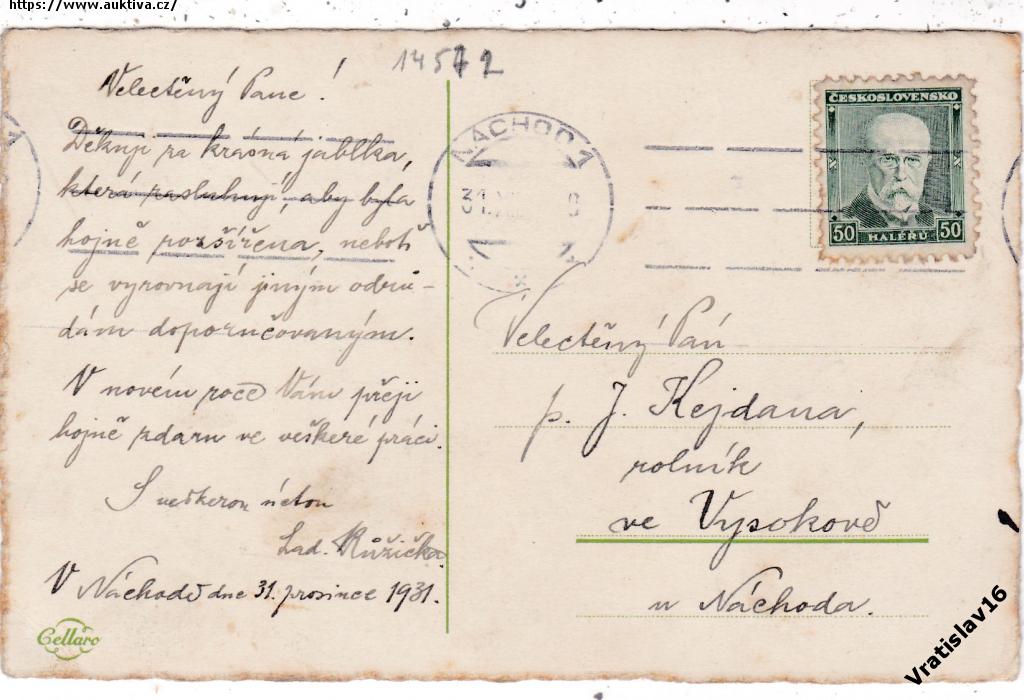 https://www.auktiva.cz/
14572
Velectěný Pane!
Děkuji za krásná jablka,
která zasluhují, aby byla
hojně rozšířena, neboť
se vyrovnají jiným odrů-
dám doporučovaným.
V novém roce Vám přeji
hojně zdaru ve veškeré práci.
S veškerou úctou
Lad. Růžička.
V Náchodě dne 31. prosince 1931.
Cellaro
NÁCHOD 1
31
ČESKOSLOVENSKO
50 HALÉRŮ 50
Velectěný Pán
p. J. Kejdana,
rolník
ve Vysokově
u Náchoda.
Vratislav16